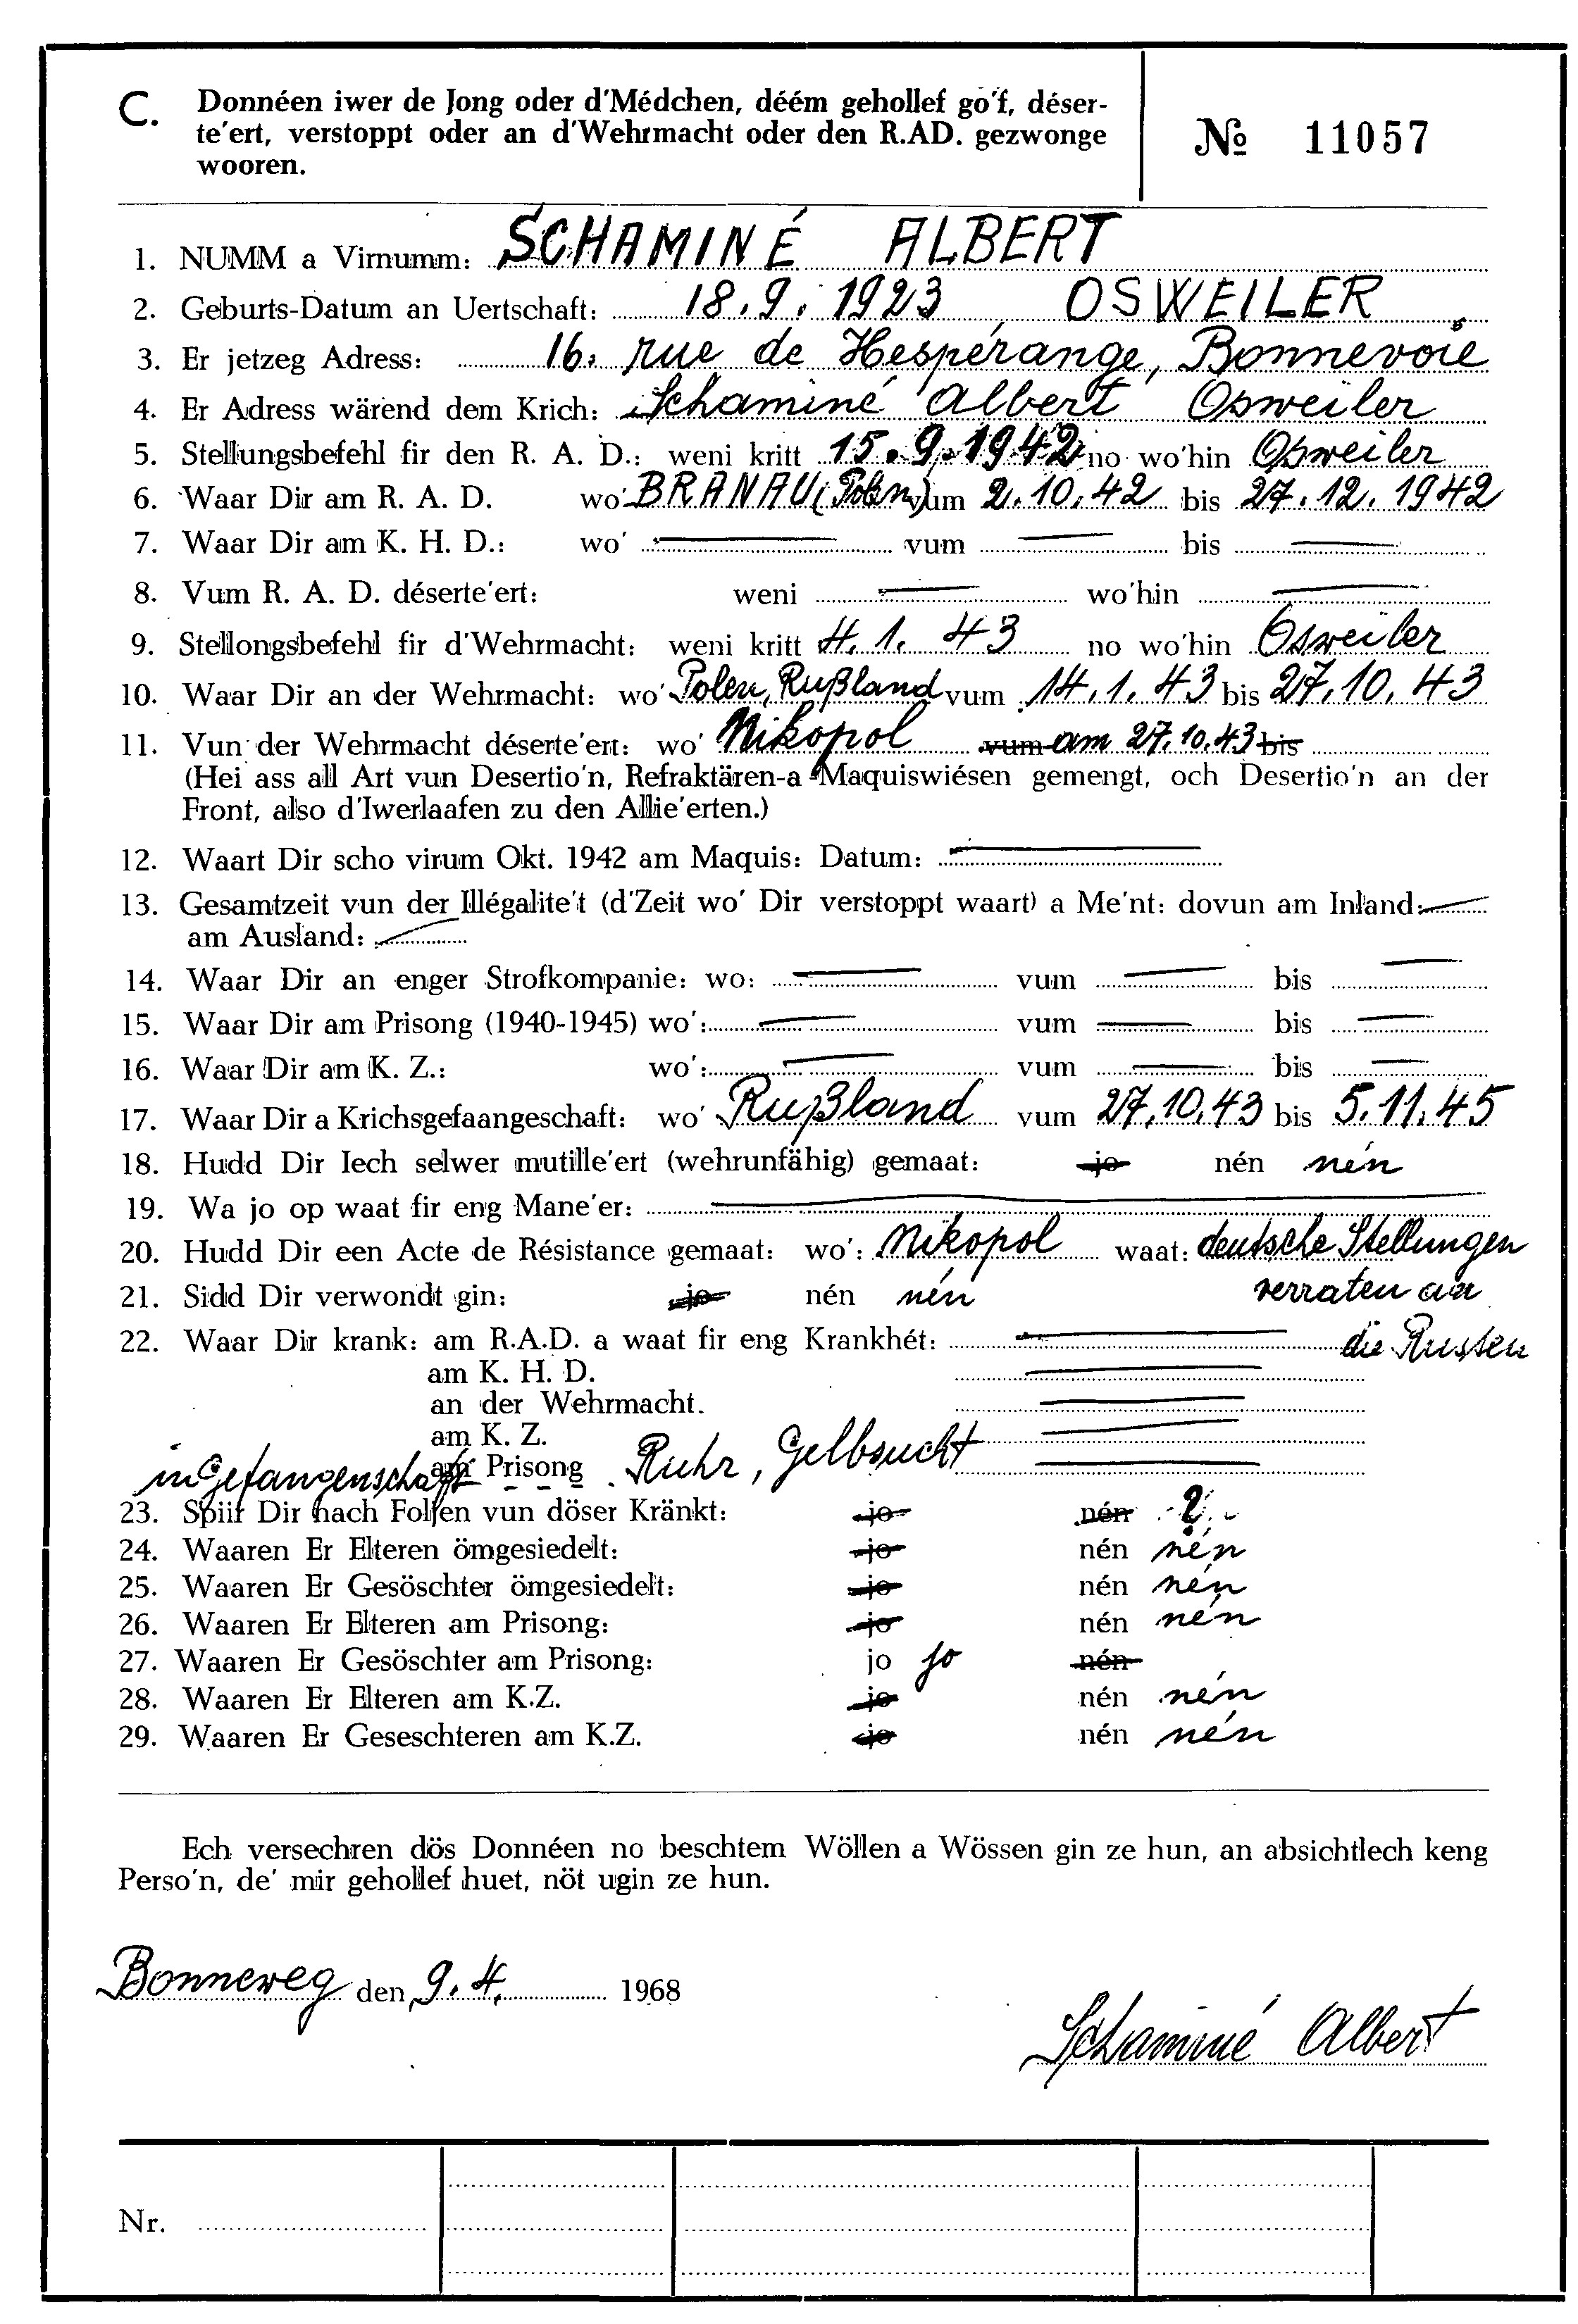 C. Donnéen iwer de Jong oder d'Médchen, déém gehollef go'f, déser-
te'ert, verstoppt oder an d'Wehrmacht oder den R.AD. gezwonge
wooren.
№ 11057
1. NUMM a Virnumm: SCHAMINÉ ALBERT
2. Geburts-Datum an Uertschaft: 18.9.1923 OSWEILER
3. Er jetzeg Adress: 16, rue de Hespérange, Bonnevoie
4. Er Adress wärend dem Krich: Schaminé Albert Osweiler
5. Stellungsbefehl fir den R. A. D.: weni kritt 15.9.1942 no wo'hin Osweiler
6. Waar Dir am R. A. D. wo' BRANAU (Polen) vum 2.10.42 bis 27.12.1942
7. Waar Dir am K. H. D.: wo' — vum — bis —
8. Vum R. A. D. déserte'ert: weni — wo'hin —
9. Stellongsbefehl fir d'Wehrmacht: weni kritt 4.1.43 no wo'hin Osweiler
10. Waar Dir an der Wehrmacht: wo' Polen, Rußland vum 14.1.43 bis 27.10.43
11. Vun der Wehrmacht déserte'ert: wo' Nikopol vum am 27.10.43 bis
(Hei ass all Art vun Desertio'n, Refraktären-a Maquiswiésen gemengt, och Desertio'n an der
Front, also d'Iwerlaafen zu den Allie'erten.)
12. Waart Dir scho virum Okt. 1942 am Maquis: Datum: —
13. Gesamtzeit vun der Illégalite't (d'Zeit wo' Dir verstoppt waart) a Me'nt: dovun am Inland: —
am Ausland: —
14. Waar Dir an enger Strofkompanie: wo: — vum — bis —
15. Waar Dir am Prisong (1940-1945) wo': — vum — bis —
16. Waar Dir am K. Z.: wo': — vum — bis —
17. Waar Dir a Krichsgefaangeschaft: wo' Rußland vum 27.10.43 bis 5.11.45
18. Hudd Dir Iech selwer mutille'ert (wehrunfähig) gemaat: jo nén nén
19. Wa jo op waat fir eng Mane'er: —
20. Hudd Dir een Acte de Résistance gemaat: wo': Nikopol waat: deutsche Stellungen
21. Sidd Dir verwondt gin: jo nén nén verraten an
22. Waar Dir krank: am R.A.D. a waat fir eng Krankhét: — die Russen
am K. H. D. —
an der Wehrmacht. —
am K. Z. —
in Gefangenschaft am Prisong Ruhr, Gelbsucht —
23. Spiir Dir nach Folfen vun döser Kränkt: jo nén ?
24. Waaren Er Elteren ömgesiedelt: jo nén nén
25. Waaren Er Gesöschter ömgesiedelt: jo nén nén
26. Waaren Er Elteren am Prisong: jo nén nén
27. Waaren Er Gesöschter am Prisong: jo jo nén
28. Waaren Er Elteren am K.Z. jo nén nén
29. Waaren Er Geseschteren am K.Z. jo nén nén
Ech versechren dös Donnéen no beschtem Wöllen a Wössen gin ze hun, an absichtlech keng
Perso'n, de' mir gehollef huet, nöt ugin ze hun.
Bonneweg den 9.4. 1968
Schaminé Albert
Nr.